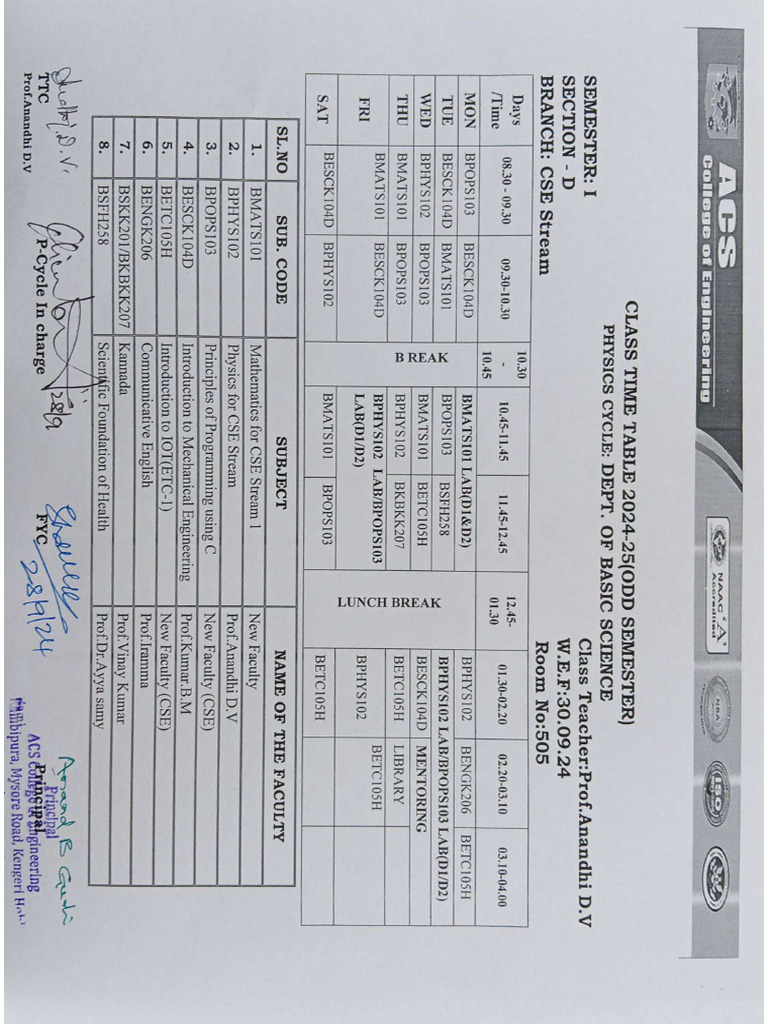 ACS
College of Engineering
NAAC "A"
Accredited
NBA
ISO
CLASS TIME TABLE 2024-25(ODD SEMESTER)
PHYSICS CYCLE: DEPT. OF BASIC SCIENCE
SEMESTER: I
SECTION - D
BRANCH: CSE Stream
Class Teacher:Prof.Anandhi D.V
W.E.F:30.09.24
Room No:505
Days /Time 08.30 - 09.30 09.30-10.30 10.30 - 10.45 10.45-11.45 11.45-12.45 12.45-01.30 01.30-02.20 02.20-03.10 03.10-04.00
MON BPOPS103 BESCK104D BMATS101 LAB(D1&D2) BPHYS102 BENGK206 BETC105H
TUE BESCK104D BMATS101 BPOPS103 BSFH258 BPHYS102 LAB/BPOPS103 LAB(D1/D2)
WED BPHYS102 BPOPS103 BMATS101 BETC105H BESCK104D MENTORING
THU BMATS101 BPOPS103 BPHYS102 BKBKK207 BETC105H LIBRARY
FRI BMATS101 BESCK104D BPHYS102 LAB/BPOPS103 LAB(D1/D2) BPHYS102 BETC105H
SAT BESCK104D BPHYS102 BMATS101 BPOPS103 BETC105H
B REAK
LUNCH BREAK
SL.NO SUB. CODE SUBJECT NAME OF THE FACULTY
1. BMATS101 Mathematics for CSE Stream 1 New Faculty
2. BPHYS102 Physics for CSE Stream Prof.Anandhi D.V
3. BPOPS103 Principles of Programming using C New Faculty (CSE)
4. BESCK104D Introduction to Mechanical Engineering Prof.Kumar.B.M
5. BETC105H Introduction to IOT(ETC-1) New Faculty (CSE)
6. BENGK206 Communicative English Prof.Iramma
7. BSKK201/BKBKK207 Kannada Prof.Vinay Kumar
8. BSFH258 Scientific Foundation of Health Prof.Dr.Ayya samy
28/9
28/9/24
Anand B
TTC
Prof.Anandhi D.V
P-Cycle In charge
FYC
Principal
Principal
ACS College of Engineering
Kambipura, Mysore Road, Kengeri